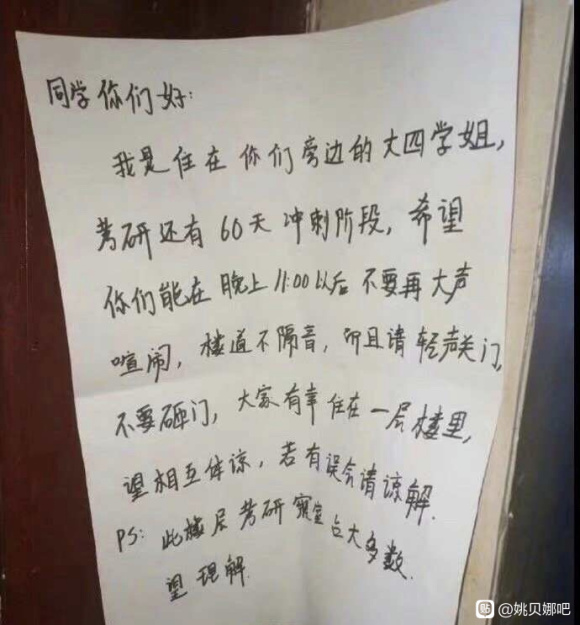 同学你们好：
我是住在你们旁边的大四学姐，
考研还有60天冲刺阶段，希望
你们能在晚上11:00以后不要再大声
喧闹，楼道不隔音，而且请轻声关门，
不要砸门，大家有幸住在一层楼里，
望相互体谅，若有误会请谅解．
PS：此楼层考研寝室占大多数．
望理解．
贴 @姚贝娜吧